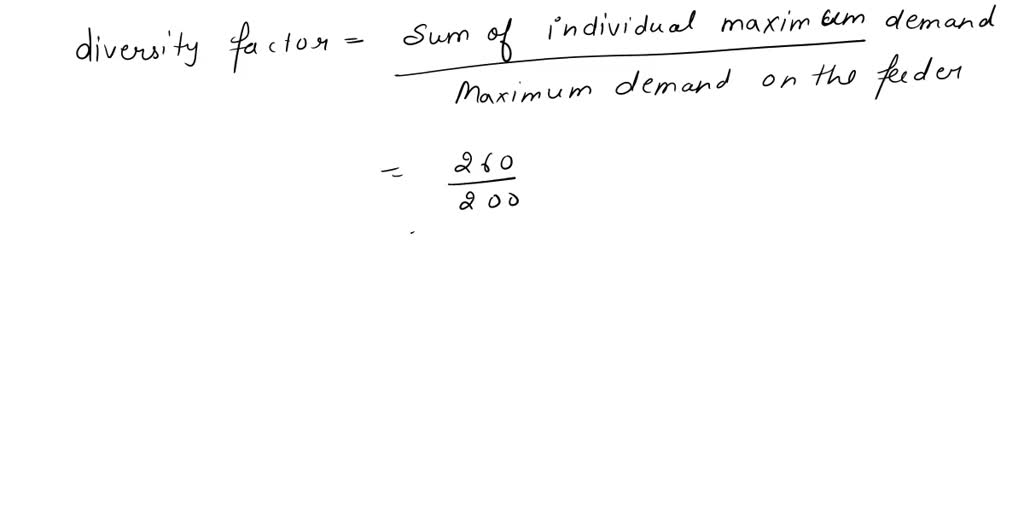 diversity factor = Sum of individual maximum demand
Maximum demand on the feeder
= 260
200